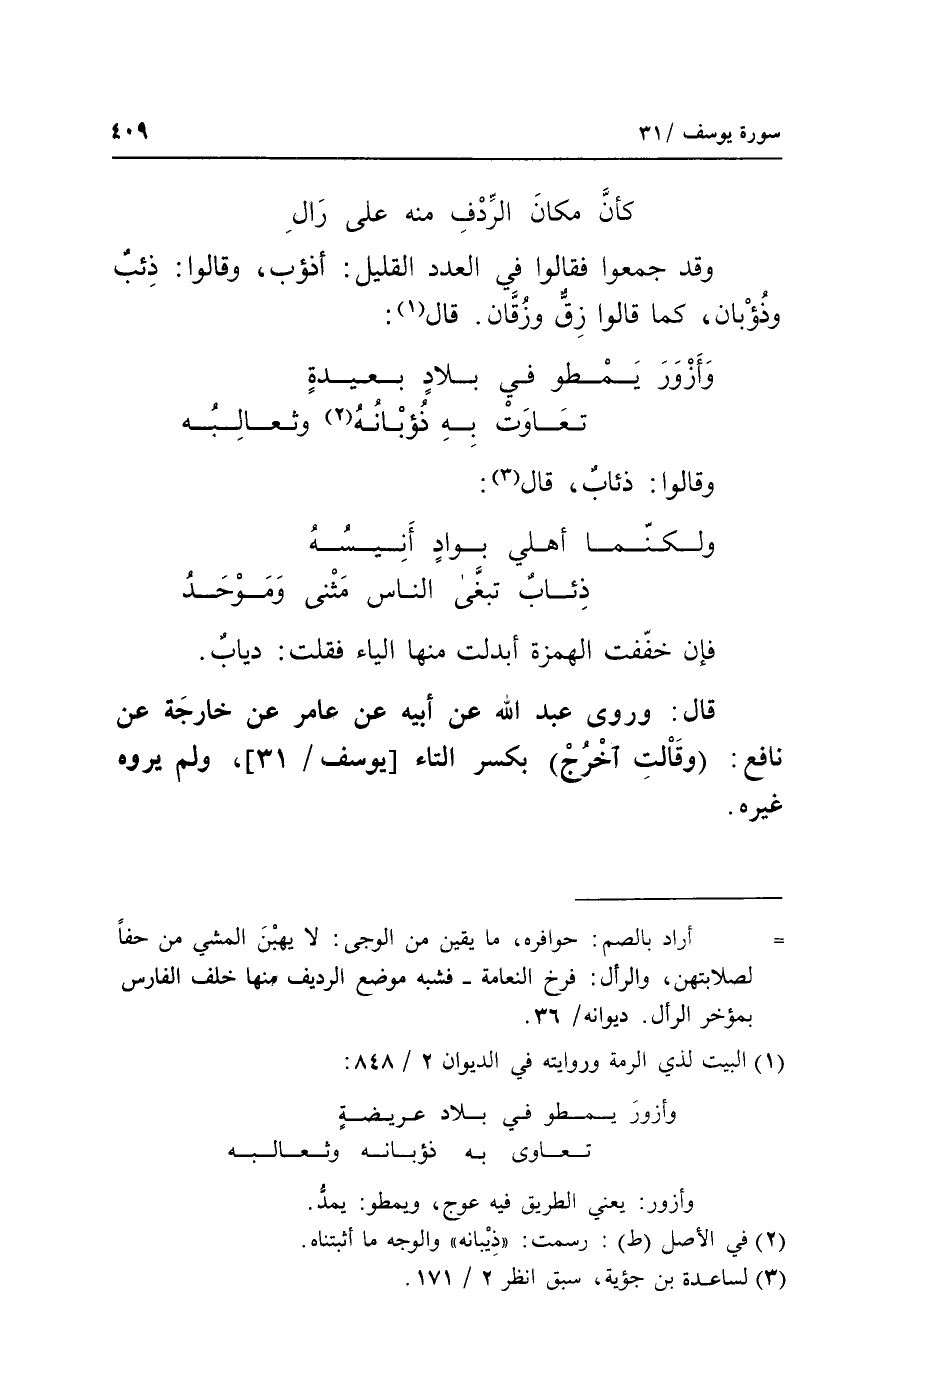 سورة يوسف /٣١ ٤٠٩
كأنَّ مكانَ الرِّدْفِ منه على رَالِ
وقد جمعوا فقالوا في العدد القليل: أذؤب، وقالوا: ذِئبٌ
وذُؤْبان، كما قالوا زِقٌّ وزُقَّان. قال(١):
وَأَزْوَرَ يَـمْـطو فـي بـلادٍ بـعـيـدةٍ
تـعَـاوَتْ بـهِ ذُؤْبـانُـهُ(٢) وثـعـالِـبُـه
وقالوا: ذئابٌ، قال(٣):
ولـكـنّـمـا أهـلي بـوادٍ أَنِـيـسُـهُ
ذِئـابٌ تبغَّىٰ الناس مَثْنى وَمَـوْحَـدُ
فإن خفّفت الهمزة أبدلت منها الياء فقلت: ديابٌ.
قال: وروى عبد الله عن أبيه عن عامر عن خارجَة عن
نافع: (وقَاْلتِ ٱخْرُجْ) بكسر التاء [يوسف/ ٣١]، ولم يروه
غيره.
= أراد بالصم: حوافره، ما يقين من الوجى: لا يهبْنَ المشي من حفاً
لصلابتهن، والرأل: فرخ النعامة ـ فشبه موضع الرديف منها خلف الفارس
بمؤخر الرأل. ديوانه/ ٣٦.
(١) البيت لذي الرمة وروايته في الديوان ٢ / ٨٤٨:
وأزورَ يـمـطو فـي بـلاد عـريـضـةٍ
تـعـاوى بـه ذؤبـانـه وثـعـالـبـه
وأزور: يعني الطريق فيه عوج، ويمطو: يمدُّ.
(٢) في الأصل (ط) : رسمت: «ذِيْبانه» والوجه ما أثبتناه.
(٣) لساعدة بن جؤية، سبق انظر ٢ / ١٧١.